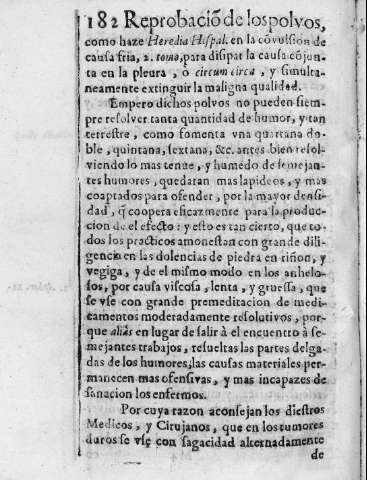 182 Reprobaciō de los polvos,
como haze Heredia Hispal. en la cōvulsion de
causa fria, 2. tomo, para disipar la causa cōjun-
ta en la pleura, ò circum circa, y simulta-
neamente extinguir la maligna qualidad.
Empero dichos polvos no pueden siem-
pre resolver tanta quantidad de humor, y tan
terrestre, como fomenta vna quartana do-
ble, quintana, sextana, &c. antes bien resol-
viendo lo mas tenue, y humedo de semejan-
tes humores, quedaran mas lapideos, y mas
coaptados para ofender, por la mayor densi-
dad, q̃ coopera eficazmente para la produc-
cion de el efecto: y esto es tan cierto, que to-
dos los practicos amonestan con grande dili-
gencia en las dolencias de piedra en riñon, y
vegiga, y de el mismo modo en los anhelo-
sos, por causa viscosa, lenta, y gruessa, que
se vse con grande premeditacion de medi-
camentos moderadamente resolutivos, por-
que aliàs en lugar de salir à el encuentro à se-
mejantes trabajos, resueltas las partes delga-
das de los humores, las causas materiales per-
manecen mas ofensivas, y mas incapazes de
sanacion los enfermos.
Por cuya razon aconsejan los diestros
Medicos, y Cirujanos, que en los tumores
duros se vse con sagacidad alternadamente
de